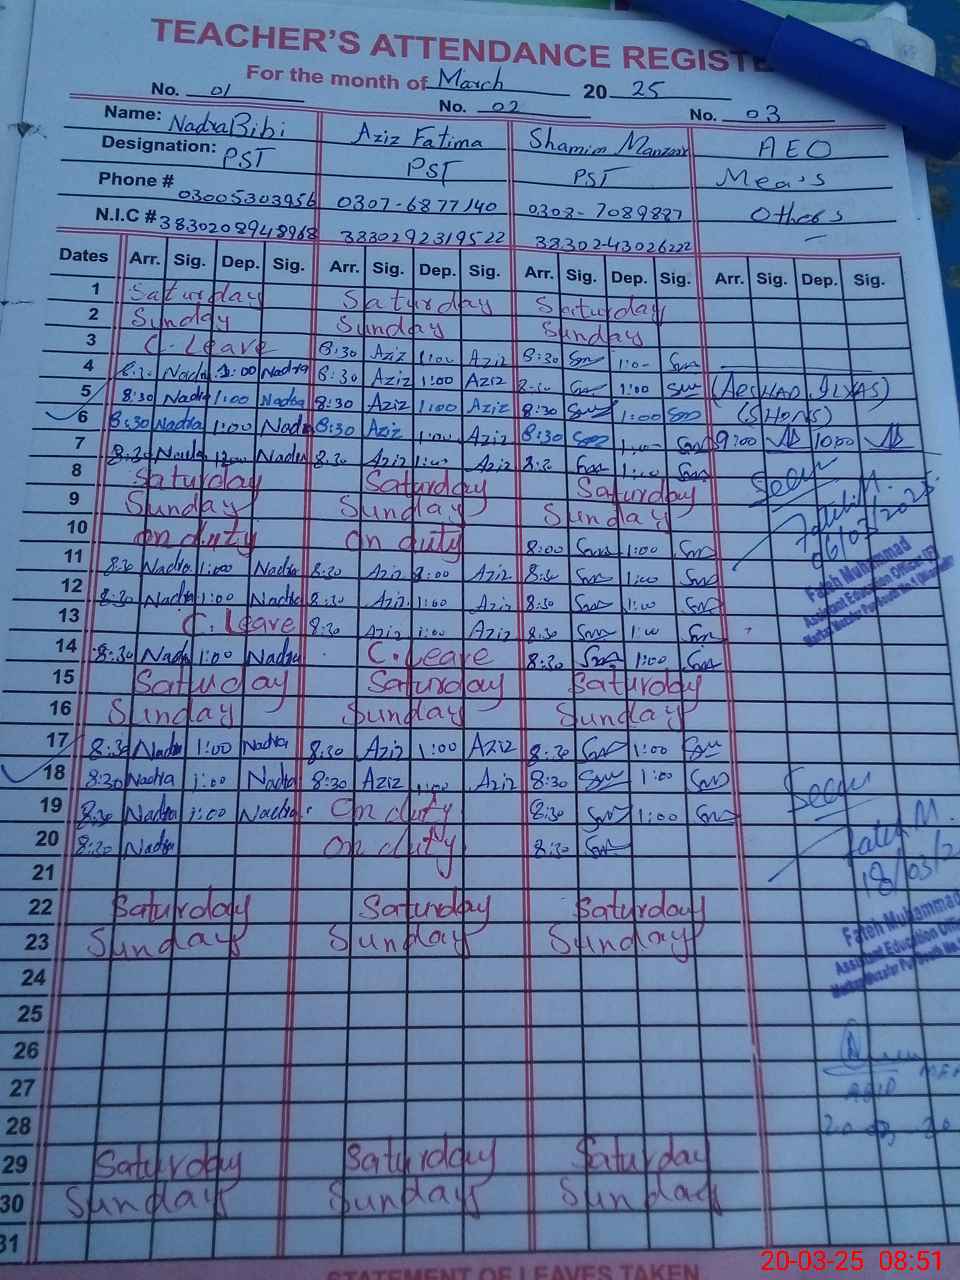 TEACHER'S ATTENDANCE REGISTE
For the month of March 20 25
No. 01 No. 02 No. 03
Name: Nadra Bibi Aziz Fatima Shamim Manzoor AEO
Designation: PST PST PST Mea's
Phone # 03005303956 0307-6877140 0308-7089887 Others
N.I.C # 3830208948968 3830292319522 38302-43026222
Dates Arr. Sig. Dep. Sig. Arr. Sig. Dep. Sig. Arr. Sig. Dep. Sig. Arr. Sig. Dep. Sig.
1 Saturday Saturday Saturday
2 Sunday Sunday Sunday
3 C. Leave 8:30 Aziz 1:00 Aziz 8:30 1:00
4 8:30 Nadra 1:00 Nadra 8:30 Aziz 1:00 Aziz 8:30 1:00 (ARSHAD ILYAS)
5 8:30 Nadra 1:00 Nadra 8:30 Aziz 1:00 Aziz 8:30 1:00
6 8:30 Nadra 1:00 Nadra 8:30 Aziz 1:00 Aziz 8:30 1:00 9:00 10:00
7 8:30 Nadra 1:00 Nadra 8:30 Aziz 1:00 Aziz 8:30 1:00
8 Saturday Saturday Saturday Seen
9 Sunday Sunday Sunday
10 on duty on duty 8:00 1:00 06/03/2025
11 8:30 Nadra 1:00 Nadra 8:30 Aziz 8:00 Aziz 8:30 1:00 Fateh Muhammad
12 8:30 Nadra 1:00 Nadra 8:30 Aziz 1:00 Aziz 8:30 1:00 Assistant Education Officer
13 C. Leave 8:30 Aziz 1:00 Aziz 8:30 1:00
14 8:30 Nadra 1:00 Nadra C. Leave 8:30 1:00
15 Satuday Saturday Saturday
16 Sunday Sunday Sunday
17 8:30 Nadra 1:00 Nadra 8:30 Aziz 1:00 Aziz 8:30 1:00
18 8:30 Nadra 1:00 Nadra 8:30 Aziz 1:00 Aziz 8:30 1:00 Seen
19 8:30 Nadra 1:00 Nadra On duty 8:30 1:00
20 8:30 Nadra on duty 8:30 Fateh M.
21 18/03/2
22 Saturday Saturday Saturday
23 Sunday Sunday Sunday Fateh Muhammad
24 Assistant Education
25
26
27
28
29 Saturday Saturday Saturday
30 Sunday Sunday Sunday
31
STATEMENT OF LEAVES TAKEN
20-03-25 08:51